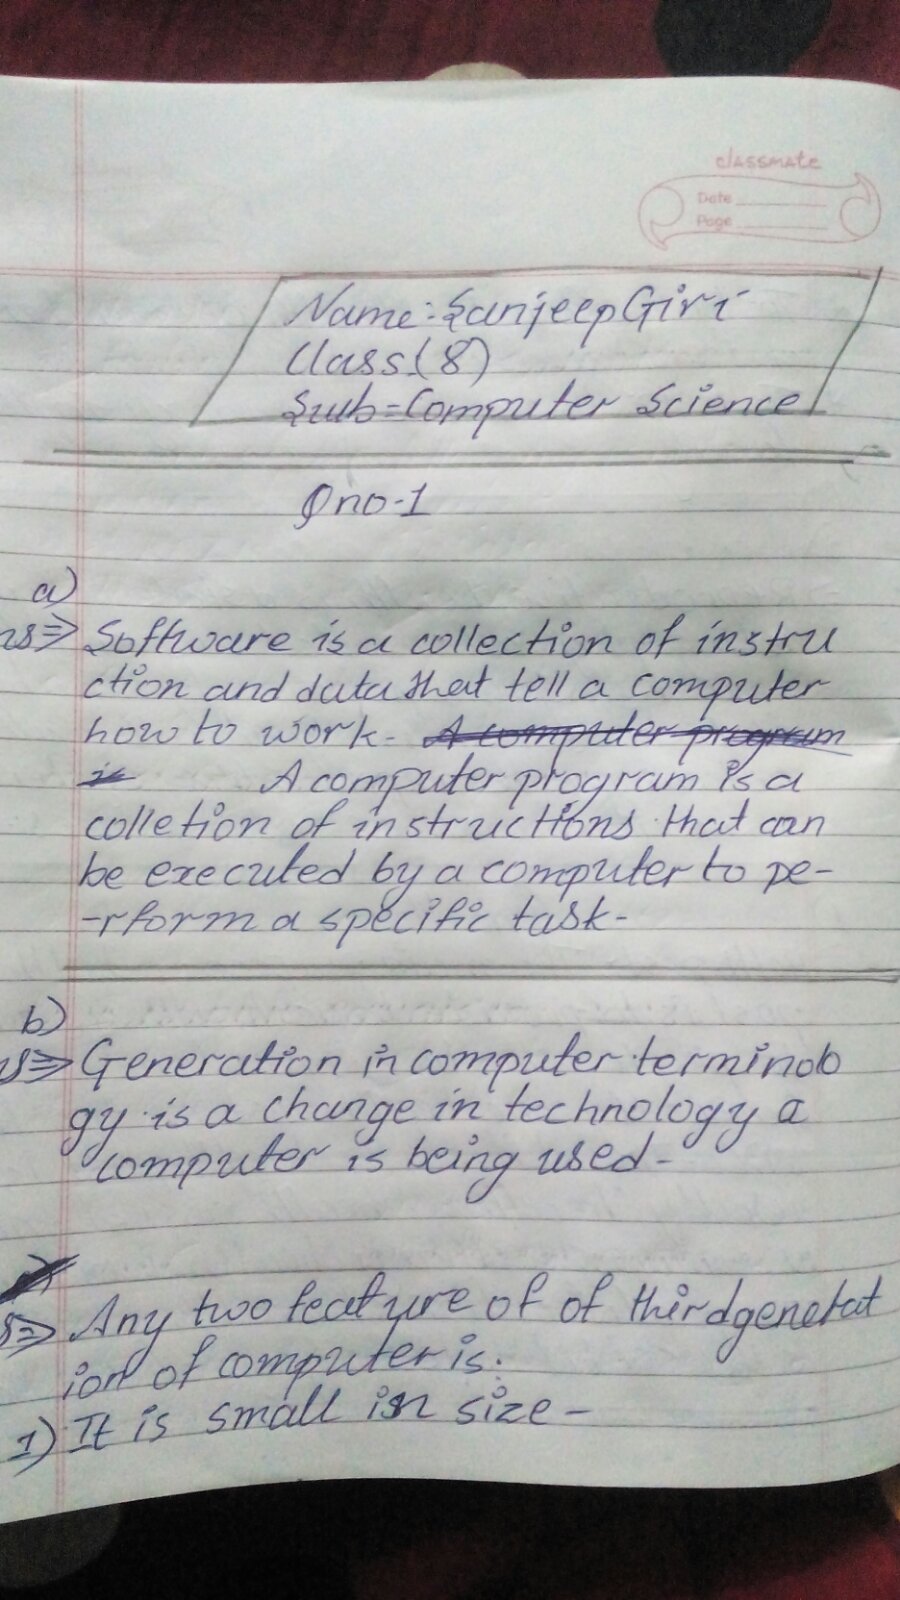 classmate
Date
Page
Name:-Sanjeep Giri
Class(8)
Sub=Computer Science
Qno-1
a)
ns⇒ Software is a collection of instru
ction and data that tell a computer
how to work- A computer program
is A computer program is a
colletion of instructions that can
be executed by a computer to pe-
-rform a specific task-
b)
ns⇒ Generation in computer terminolo
gy is a change in technology a
computer is being used-
s⇒ Any two feature of of third generat
ion of computer is:
1) It is small in size-